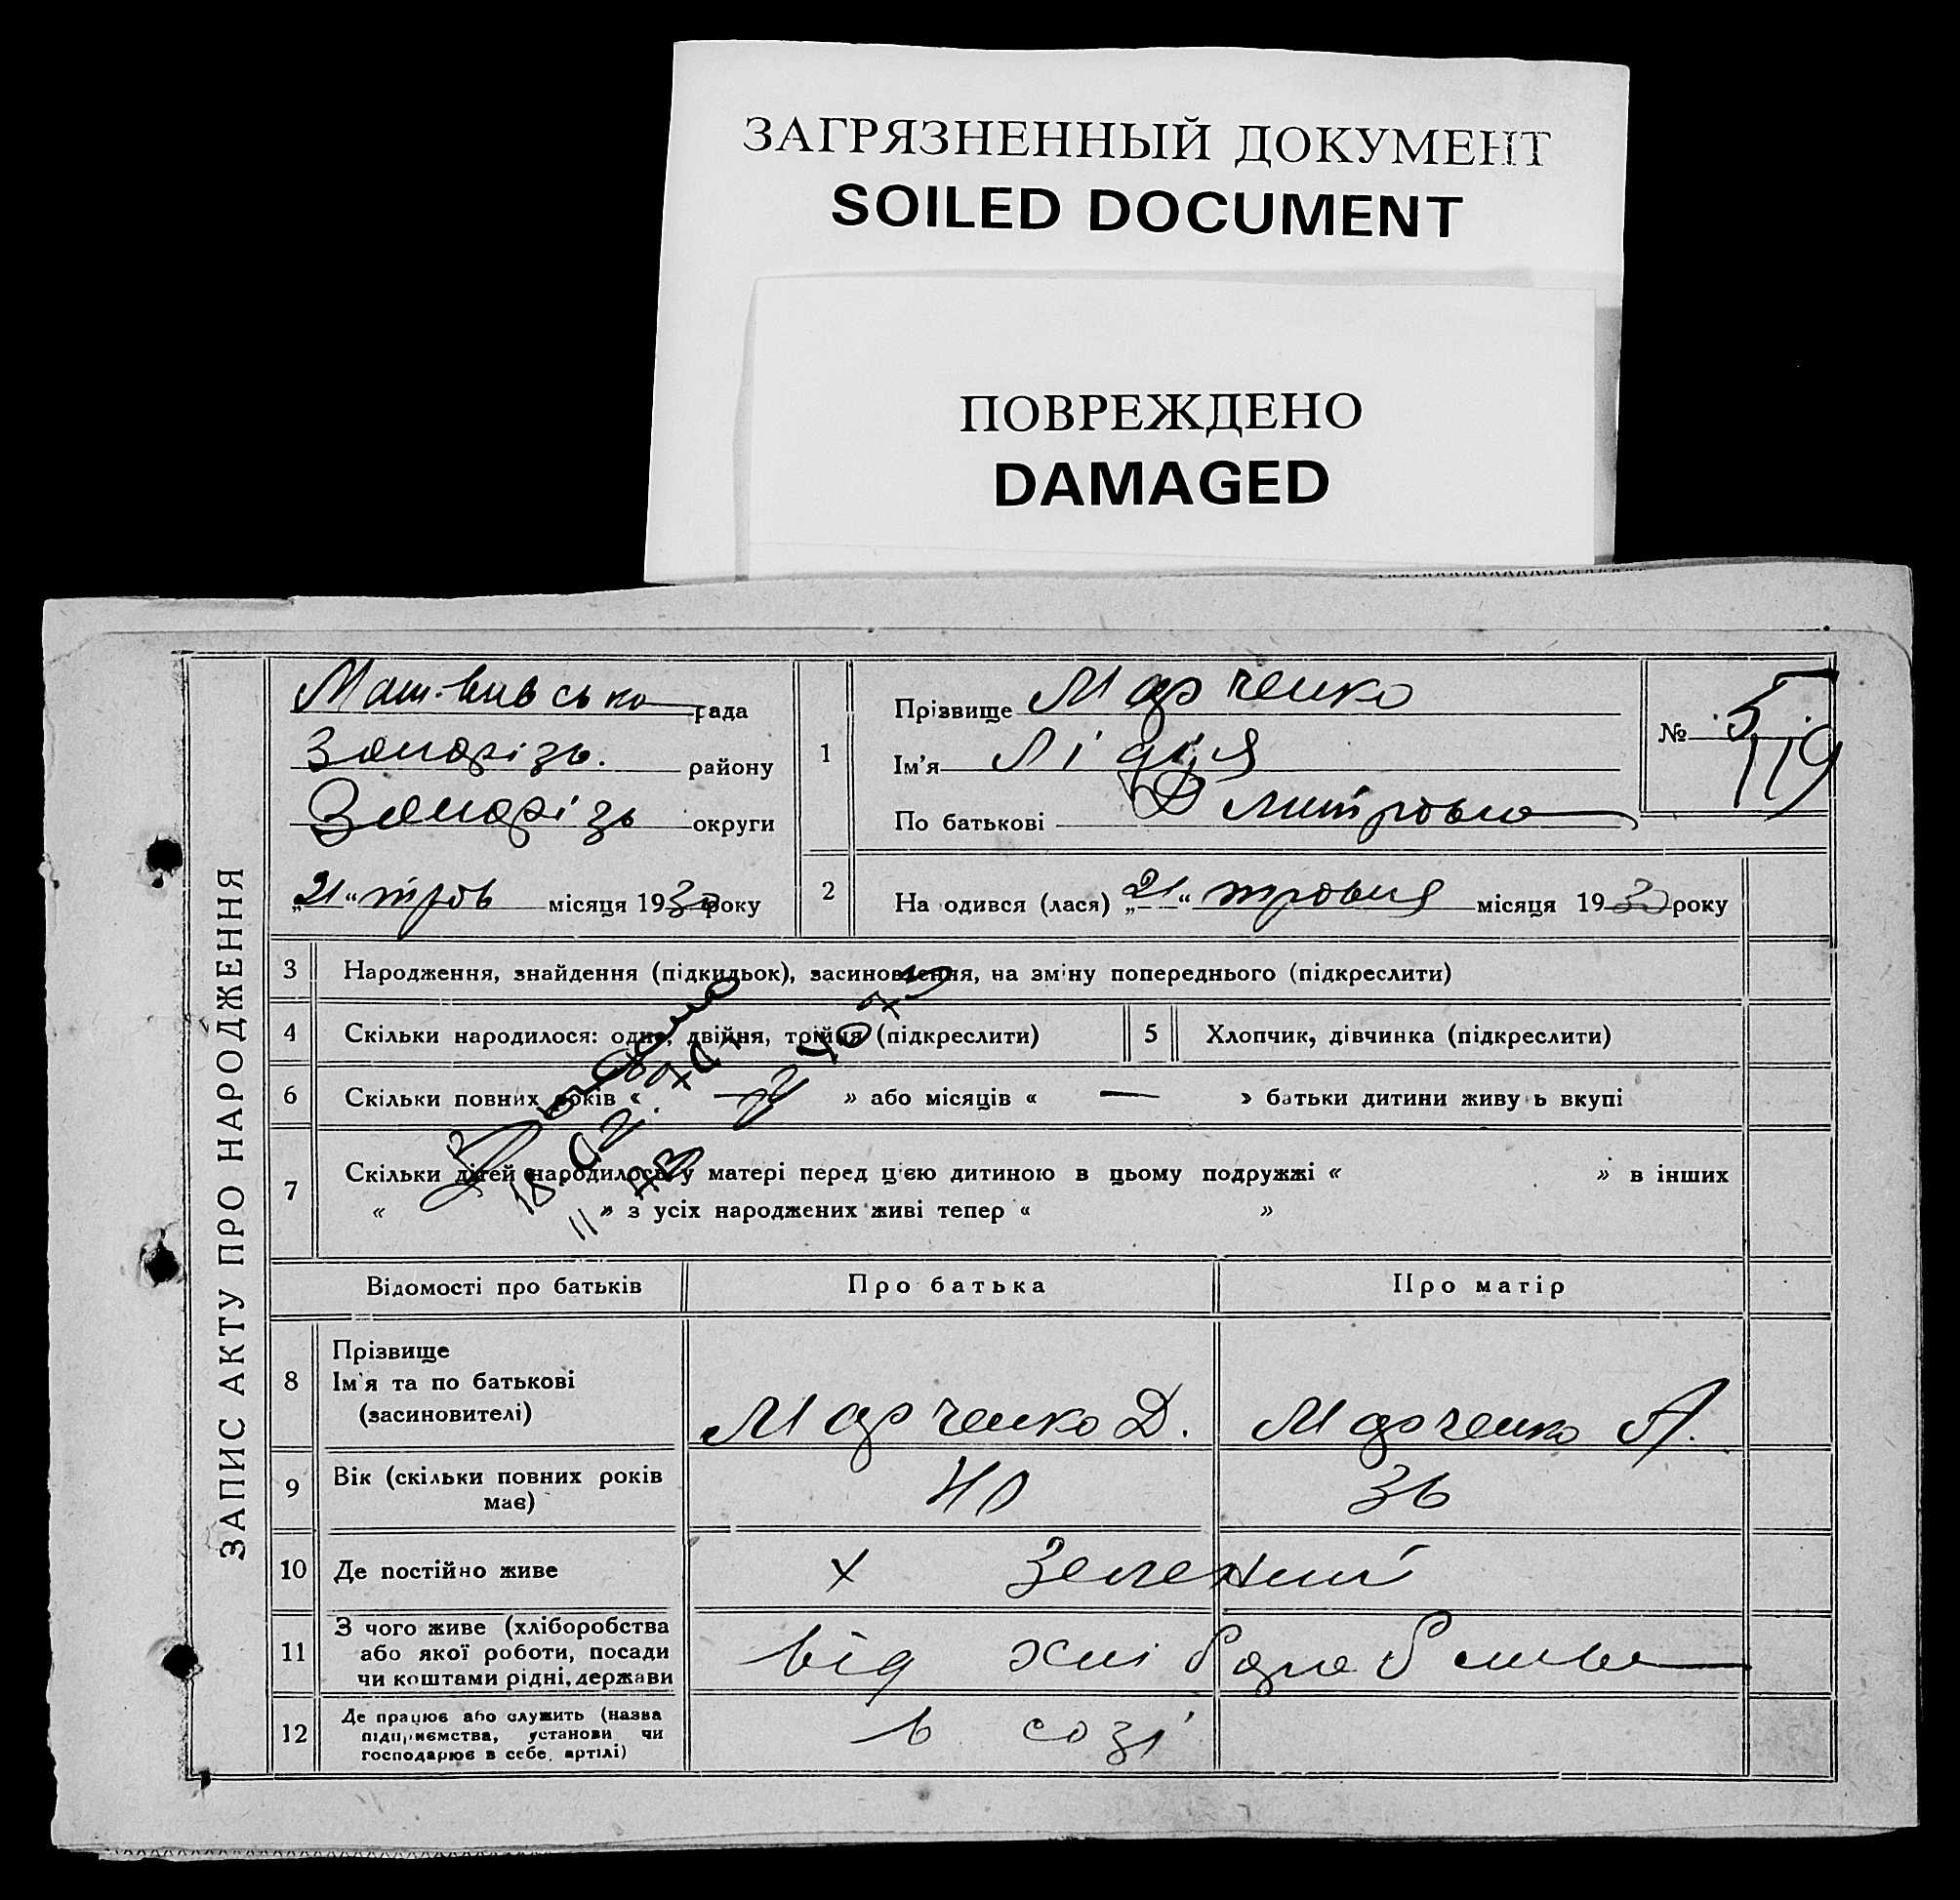 ЗАГРЯЗНЕННЫЙ ДОКУМЕНТ
SOILED DOCUMENT
ПОВРЕЖДЕНО
DAMAGED
ЗАПИС АКТУ ПРО НАРОДЖЕННЯ
рада
Запорізь. району
Запорізь округи
„21“ трав місяця 1930 року
1
Прізвище Марченко
Ім'я Лідія
По батькові Дмитровна
№ 5
119
2 На одився (лася) „21“ травня місяця 1930 року
3 Народження, знайдення (підкидьок), засиновлення, на зміну попереднього (підкреслити)
4 Скільки народилося: одне, двійня, трійня (підкреслити)
5 Хлопчик, дівчинка (підкреслити)
6 Скільки повних років « — » або місяців « — » батьки дитини живуть вкупі
7 Скільки дітей народилось у матері перед цією дитиною в цьому подружжі « » в інших
« » з усіх народжених живі тепер « »
Відомості про батьків Про батька Про матір
8 Прізвище
Ім'я та по батькові
(засиновителі)
Марченко Д. Марченко А.
9 Вік (скільки повних років
має)
40 36
10 Де постійно живе х Зелений
11 З чого живе (хліборобства
або якої роботи, посади
чи коштами рідні, держави
від хліборобства
12 Де працює або служить (назва
підприємства, установи чи
господарює в себе, артілі)
в созі